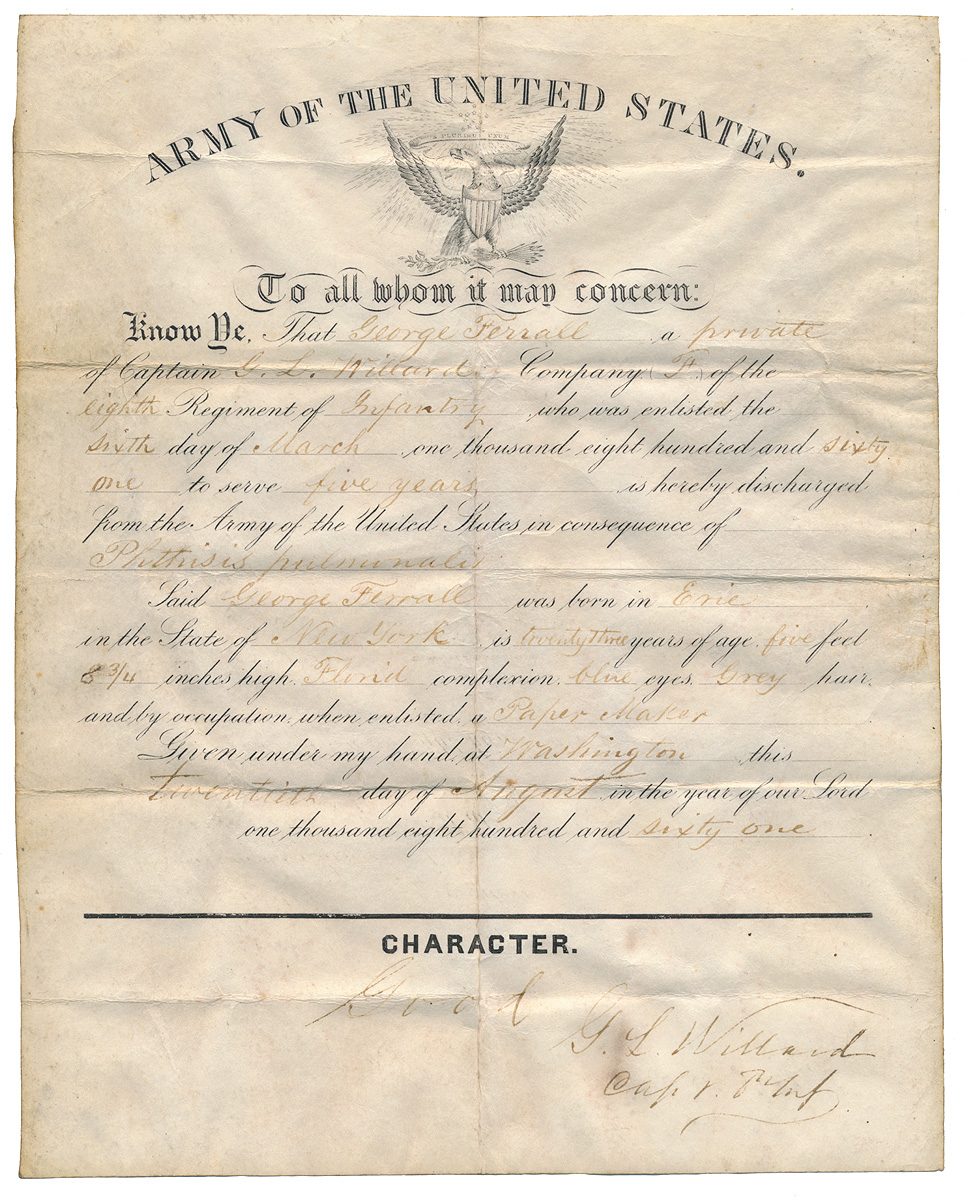 ARMY OF THE UNITED STATES.
E PLURIBUS UNUM
To all whom it may concern:
Know Ye, That George Ferrall a private
of Captain G. L. Willard's Company (F) of the
eighth Regiment of Infantry who was enlisted the
sixth day of March one thousand eight hundred and sixty
one to serve five years is hereby discharged
from the Army of the United States in consequence of
Phthisis pulmonalis
Said George Ferrall was born in Erie
in the State of New York is twenty three years of age, five feet
8 3/4 inches high, Florid complexion, blue eyes, Grey hair,
and by occupation, when enlisted, a Paper Maker
Given under my hand at Washington this
twentieth day of August in the year of our Lord
one thousand eight hundred and sixty one
CHARACTER.
Good
G. L. Willard
Capt. Inf